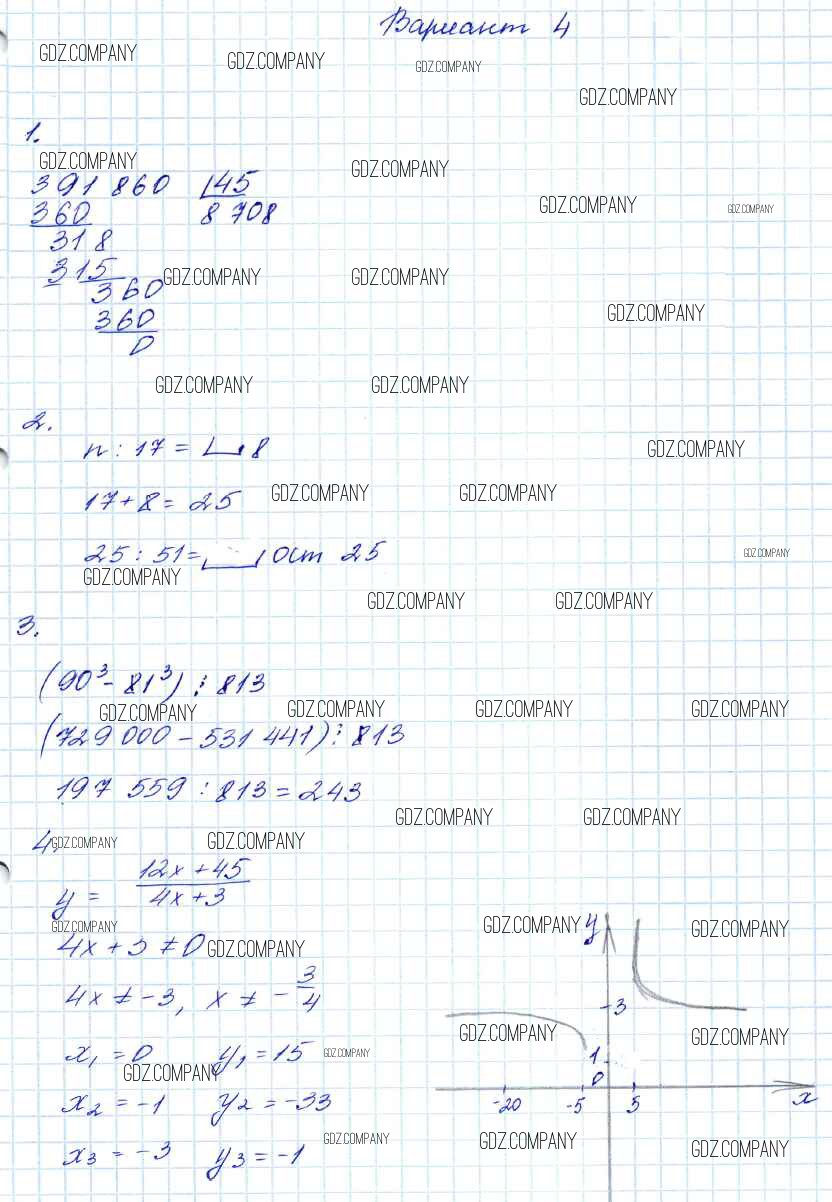 Вариант 4
GDZ.COMPANY GDZ.COMPANY GDZ.COMPANY
GDZ.COMPANY
1.
GDZ.COMPANY GDZ.COMPANY
391 860 45
GDZ.COMPANY GDZ.COMPANY
360 8 708
318
315
GDZ.COMPANY GDZ.COMPANY
360
GDZ.COMPANY
360
0
GDZ.COMPANY GDZ.COMPANY
2.
n : 17 = 8
GDZ.COMPANY
17 + 8 = 25
GDZ.COMPANY GDZ.COMPANY
25 : 51 = ост 25
GDZ.COMPANY
GDZ.COMPANY
GDZ.COMPANY GDZ.COMPANY
3.
(90³ - 81³) ⋮ 813
GDZ.COMPANY GDZ.COMPANY GDZ.COMPANY GDZ.COMPANY
(729 000 - 531 441) ⋮ 813
197 559 : 813 = 243
GDZ.COMPANY GDZ.COMPANY
4.
GDZ.COMPANY GDZ.COMPANY
y = (12x + 45)/(4x + 3)
GDZ.COMPANY GDZ.COMPANY y GDZ.COMPANY
4x + 3 ≠ 0
GDZ.COMPANY
4x ≠ -3, x ≠ -3/4
-3
GDZ.COMPANY GDZ.COMPANY
x₁ = 0 y₁ = 15
GDZ.COMPANY
1
GDZ.COMPANY
0
x₂ = -1 y₂ = -33
-20 -5 5 x
GDZ.COMPANY GDZ.COMPANY GDZ.COMPANY
x₃ = -3 y₃ = -1